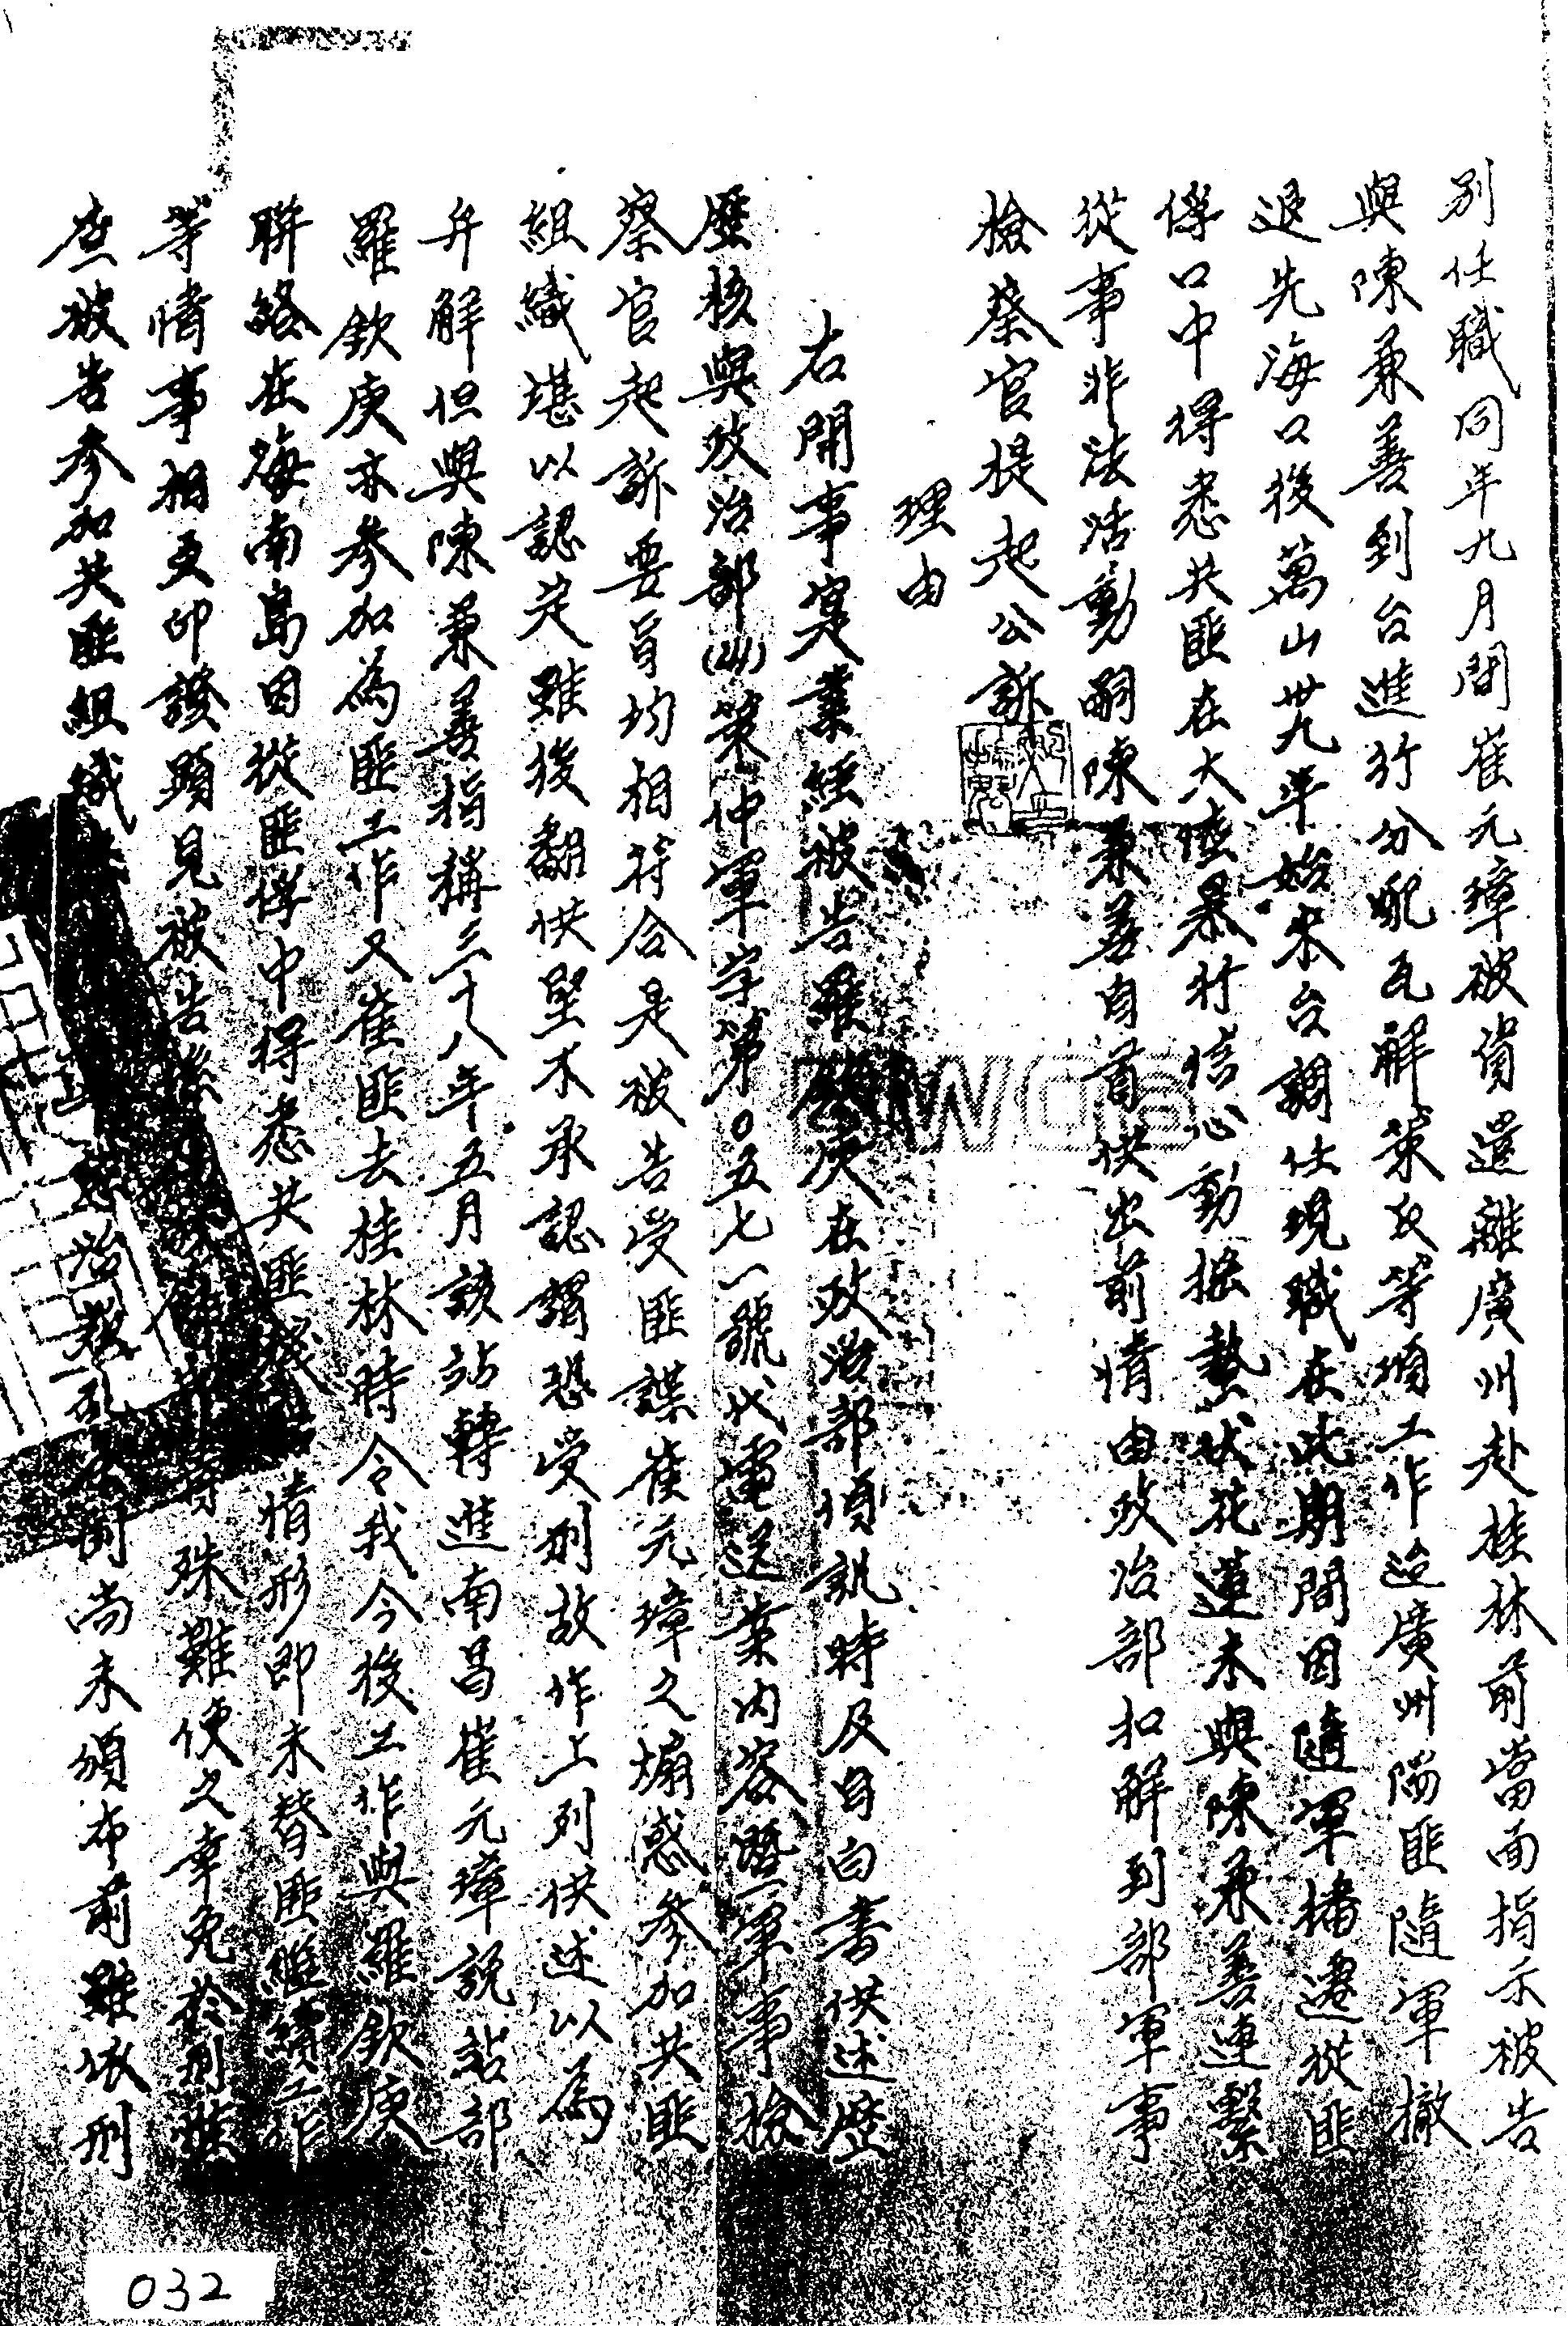 別任職同年九月間崔元璋被資遣離廣州赴桂林前當面指示被告
與陳兼善到台進行分配瓦解策反等項工作迨廣州陷匪隨軍撤
退先海口後萬山卅九年始來台調任現職在此期間因隨軍播遷從匪
俘口中得悉共匪在大陸暴行信心動搖蟄伏花蓮未與陳兼善連繫
從事非法活動嗣陳兼善自首供出前情由政治部扣解到部軍事
檢察官提起公訴
理由
右開事實業經被告羅欽庚在政治部偵訊時及自白書供述歷
歷核與政治部(41)策仲軍字第0五七一號代電送案內容暨軍事檢
察官起訴要旨均相符合是被告受匪諜崔元璋之煽惑參加共匪
組織堪以認定雖後翻供堅不承認謂恐受刑故作上列供述以為
弁解但與陳兼善指稱三十八年五月該站轉進南昌崔元璋說站部
羅欽庚亦參加為匪工作又崔匪去桂林時令我今後工作與羅欽庚
聯絡在海南島因從匪俘中得悉共匪殘 情形即未替匪繼續工作
等情事相互印證顯見被告 殊難使之幸免於刑
查被告參加共匪組織 懲治叛亂條例尚未頒布前雖依刑
032